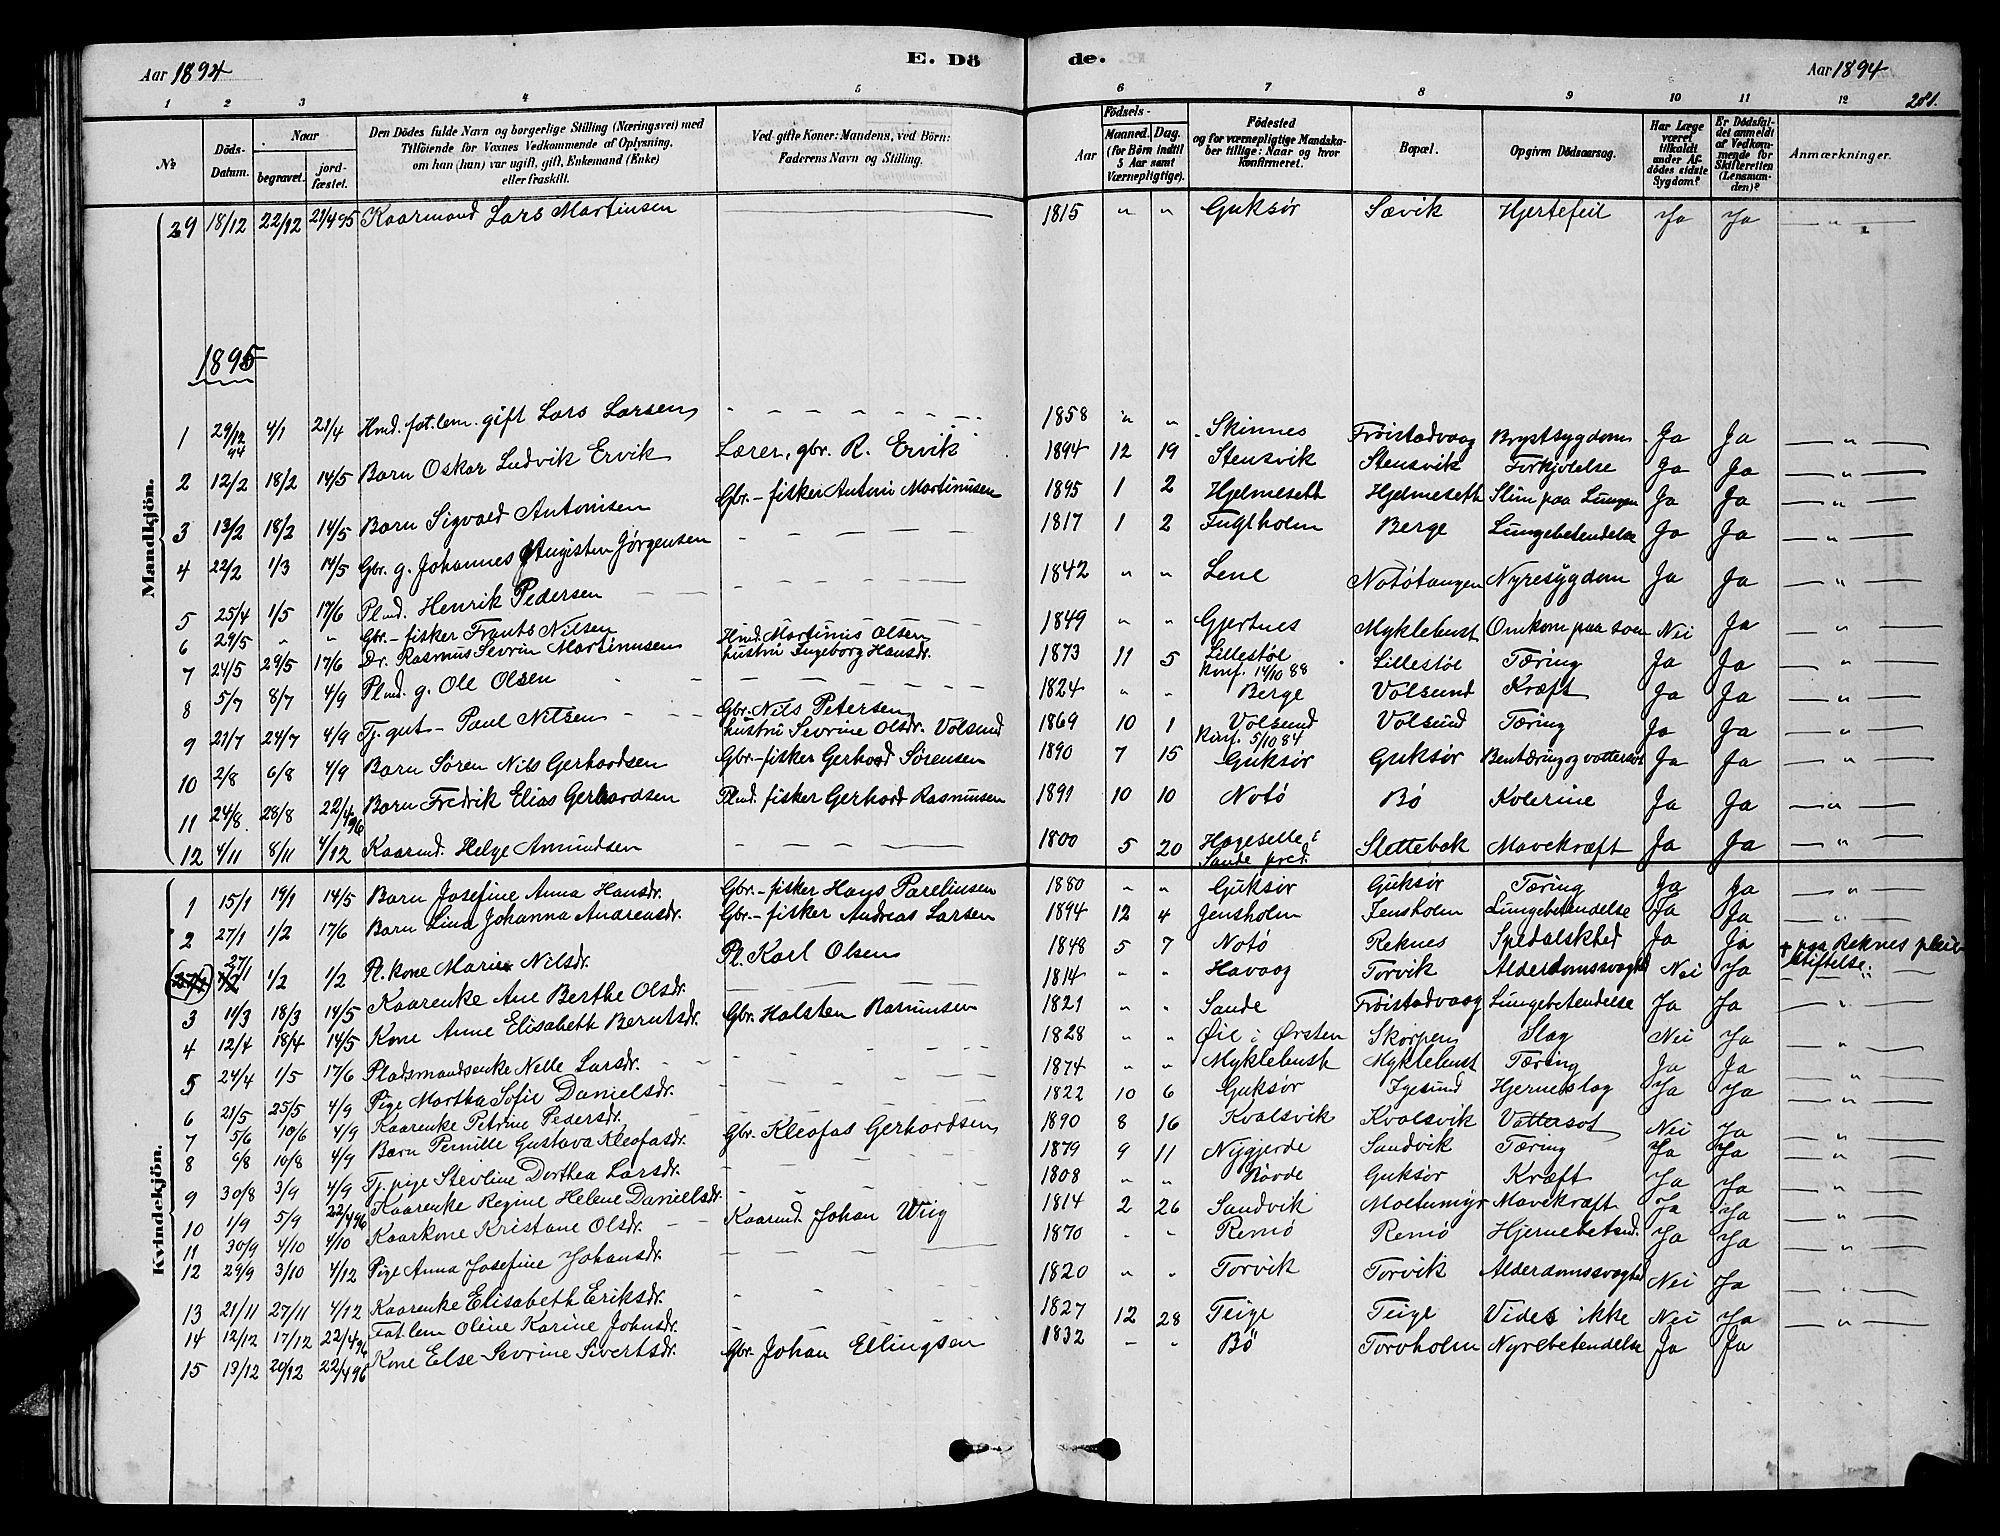 Aar 1894
E. Dö
de.
Aar 1894
281.
1 2 3 4 5 6 7 8 9 10 11 12
№
Döds-Datum.
Naar
begravet.
jord-fæstet.
Den Dödes fulde Navn og borgerlige Stilling (Næringsvei) med
Tilföiende for Voxnes Vedkommende af Oplysning,
om han (hun) var ugift, gift, Enkemand (Enke)
eller fraskilt.
Ved gifte Koner: Mandens, ved Börn:
Faderens Navn og Stilling.
Födsels-
Aar
Maaned. Dag.
(for Börn indtil
5 Aar samt
Værnepligtige).
Födested
og for værnepligtige Mandska-
ber tillige: Naar og hvor
Konfirmeret.
Bopæl.
Opgiven Dödsaarsag.
Har Læge
været
tilkaldt
under Af-
dödes sidste
Sygdom?
Er Dödsfal-
det anmeldt
af Vedkom-
mende for
Skifteretten
(Lensman-
den)?
Anmærkninger.
Mandkjön.
29 18/12 22/12 21/4 95 Kaarmand Lars Martinsen 1815 " " Guksør Sævik Hjertefeil Ja Ja "
1895
1 29/12 94 4/1 21/4 Hmd. fat.lem. gift Lars Larsen 1858 " " Skinnes Frøistadvaag Brystsygdom Ja Ja "
2 12/2 18/2 14/5 Barn Oskar Ludvik Ervik Lærer, gbr. R. Ervik 1894 12 19 Stensvik Stensvik Forkjølelse Ja Ja "
3 13/2 18/2 14/5 Barn Sigvald Antonisen Gbr.-fisker Antoni Martinusen 1895 1 2 Hjelmeseth Hjelmeseth Slim paa Lungen Ja Ja "
4 22/2 1/3 14/5 Gbr. g. Johannes Augisten Jørgensen 1817 1 2 Fuglholm Berge Lungebetendelse Ja Ja "
5 25/4 1/5 17/6 Plmd. Henrik Pedersen 1842 " " Lene Notøtangen Nyresygdom Ja Ja "
6 29/5 " " Gbr.-fisker Frants Nilsen 1849 " " Gjertnes Myklebust Omkom paa søen Nei Ja "
7 24/5 29/5 17/6 Dr. Rasmus Sevrin Martinusen Hmd. Martinus Olsen hustru Ingeborg Hansdr. 1873 11 5 Lillestøl Konf. 14/10 88 Lillestøl Tæring Ja Ja "
8 5/7 8/7 4/9 Plmd. g. Ole Olsen 1824 " " Berge Volsund Kræft Ja Ja "
9 21/7 24/7 4/9 Tj. gut - Paul Nilsen Gbr. Nils Petersen hustru Sevrine Olsdr. Volsund 1869 10 1 Volsund Konf. 5/10 84 Volsund Tæring Ja Ja "
10 2/8 6/8 4/9 Barn Søren Nils Gerhardsen Gbr.-fisker Gerhard Sørensen 1890 7 15 Guksør Guksør Bentæring og vattersot Ja Ja "
11 24/8 28/8 22/4 96 Barn Fredrik Elias Gerhardsen Plmd. fisker Gerhard Rasmusen 1891 10 10 Notø Bø Kolerine Ja Ja "
12 4/11 8/11 4/12 Kaarmd. Helge Amundsen 1800 5 20 Hageselle i Sande pred. Slettebak Mavekræft Ja Ja "
Kvindekjön.
1 15/1 19/1 14/5 Barn Josefine Anna Hansdr. Gbr.-fisker Hans Parelinsen 1880 " " Guksør Guksør Tæring Ja Ja "
2 27/1 1/2 17/6 Barn Lina Johanna Andreasdr. Gbr.-fisker Andreas Larsen 1894 12 4 Jensholm Jensholm Lungebetendelse Ja Ja "
27/1 1/2 1/2 Pl.kone Marie Nilsdr. Pl. Karl Olsen 1848 5 7 Notø Reknes Spedalskhed Ja Ja + paa Reknes pleie-
stiftelse.
3 11/3 18/3 14/5 Kaarenke Ane Berthe Olsdr. 1814 " " Havaag Torvik Alderdomssvaghed Nei Ja
4 12/4 18/4 14/5 Kone Anne Elisabeth Berntsdr. Gbr. Halsten Rasmusen 1821 " " Sande Frøistadvaag Lungebetendelse Ja Ja "
5 24/4 1/5 17/6 Pladsmandsenke Nelle Larsdr. 1828 " " Øie i Ørsten Skorpen Slag Nei Ja "
6 21/5 25/5 4/9 Pige Martha Sofie Danielsdr. 1874 " " Myklebust Myklebust Tæring Ja Ja "
7 5/6 10/6 4/9 Kaarenke Petrine Pedersdr. 1822 10 6 Guksør Igesund Hjerneslag Ja Ja "
8 6/8 10/8 4/9 Barn Pernille Gustava Kleofasdr. Gbr. Kleofas Gerhardsen 1890 8 16 Kvalsvik Kvalsvik Vattersot Nei Ja "
9 30/8 3/9 4/9 Tj.pige Stevline Dorthea Larsdr. 1879 9 11 Nygjerde Sandvik Tæring Ja Ja "
10 1/9 5/9 22/4 96 Kaarenke Regine Helene Danielsdr. 1808 " " Røvde Guksør Kræft Ja Ja "
11 30/9 4/10 4/10 Kaarkone Kristane Olsdr. Kaarmd. Johan Wiig 1814 2 26 Sandvik Moltumyr Mavekræft Ja Ja "
12 29/9 3/10 4/12 Pige Anna Josefine Johansdr. 1870 " " Remø Remø Hjernebetænd. Ja Ja "
13 21/11 27/11 4/12 Kaarenke Elisabeth Eriksdr. 1820 " " Torvik Torvik Alderdomssvaghed Nei Ja "
14 12/12 17/12 22/4 96 Fat.lem Oline Karine Johnsdr. 1827 12 28 Teige Teige Vides ikke Nei Ja "
15 13/12 20/12 22/4 96 Kone Else Sevrine Sivertsdr. Gbr. Johan Ellingsen 1832 - " Bø Torvholm Nyrebetendelse Ja Ja